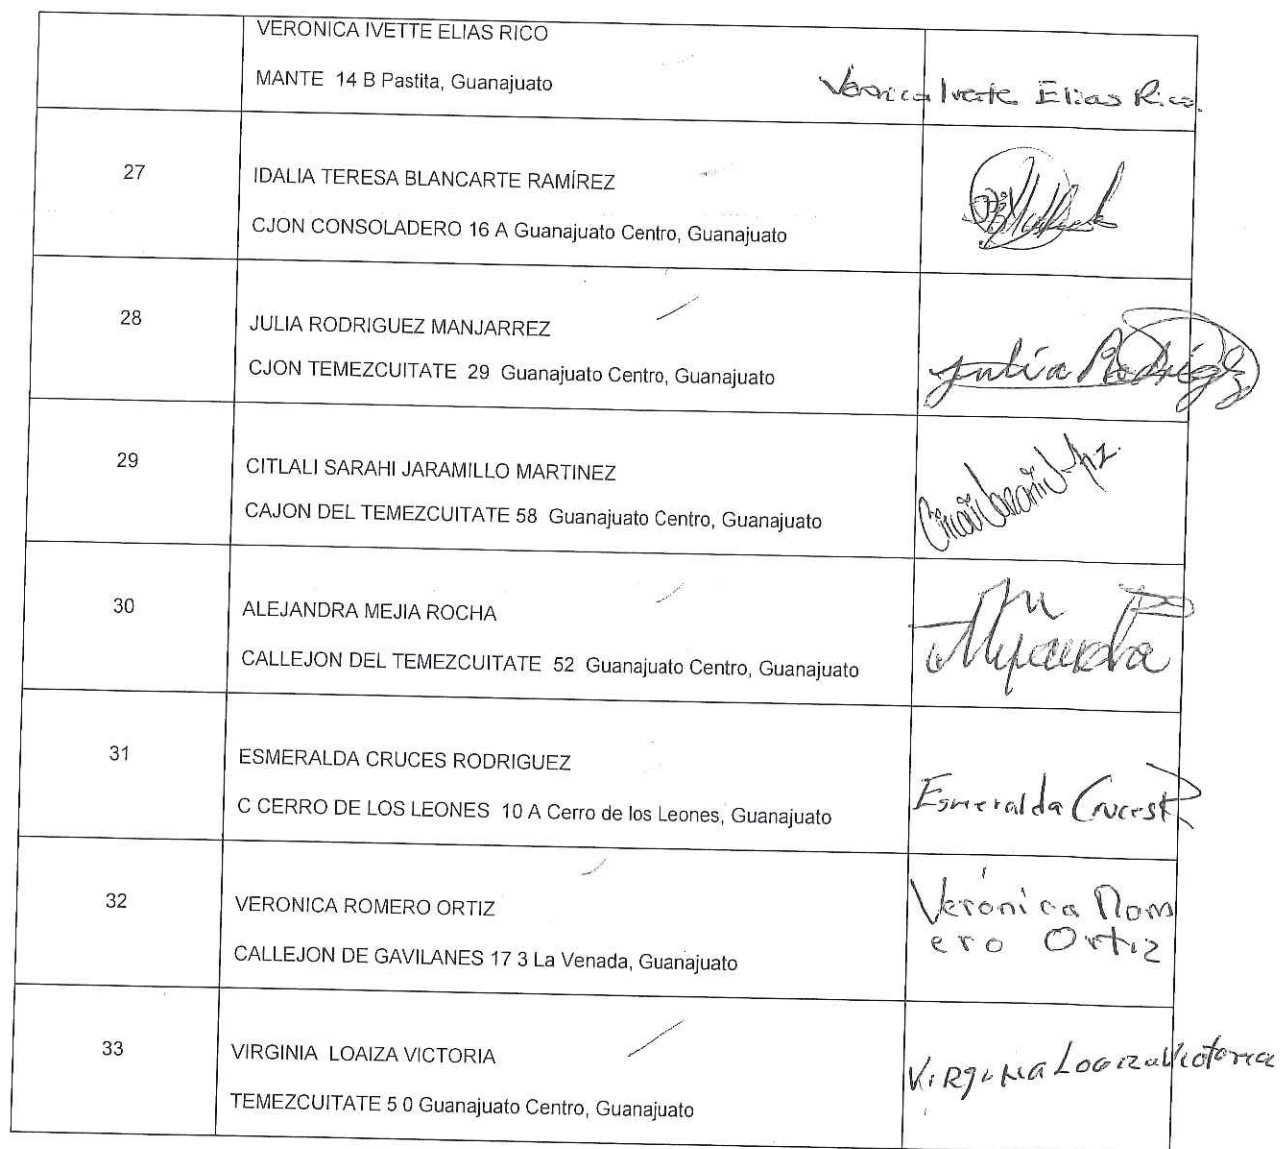 VERONICA IVETTE ELIAS RICO
MANTE 14 B Pastita, Guanajuato
Veronica Ivette Elias Rico.
27
IDALIA TERESA BLANCARTE RAMÍREZ
CJON CONSOLADERO 16 A Guanajuato Centro, Guanajuato
28
JULIA RODRIGUEZ MANJARREZ
CJON TEMEZCUITATE 29 Guanajuato Centro, Guanajuato
Julia Rodrigz
29
CITLALI SARAHI JARAMILLO MARTINEZ
CAJON DEL TEMEZCUITATE 58 Guanajuato Centro, Guanajuato
30
ALEJANDRA MEJIA ROCHA
CALLEJON DEL TEMEZCUITATE 52 Guanajuato Centro, Guanajuato
31
ESMERALDA CRUCES RODRIGUEZ
C CERRO DE LOS LEONES 10 A Cerro de los Leones, Guanajuato
Esmeralda Cruces R
32
VERONICA ROMERO ORTIZ
CALLEJON DE GAVILANES 17 3 La Venada, Guanajuato
Verónica Rom
ero Ortiz
33
VIRGINIA LOAIZA VICTORIA
TEMEZCUITATE 5 0 Guanajuato Centro, Guanajuato
Virginia Loaiza Victoria